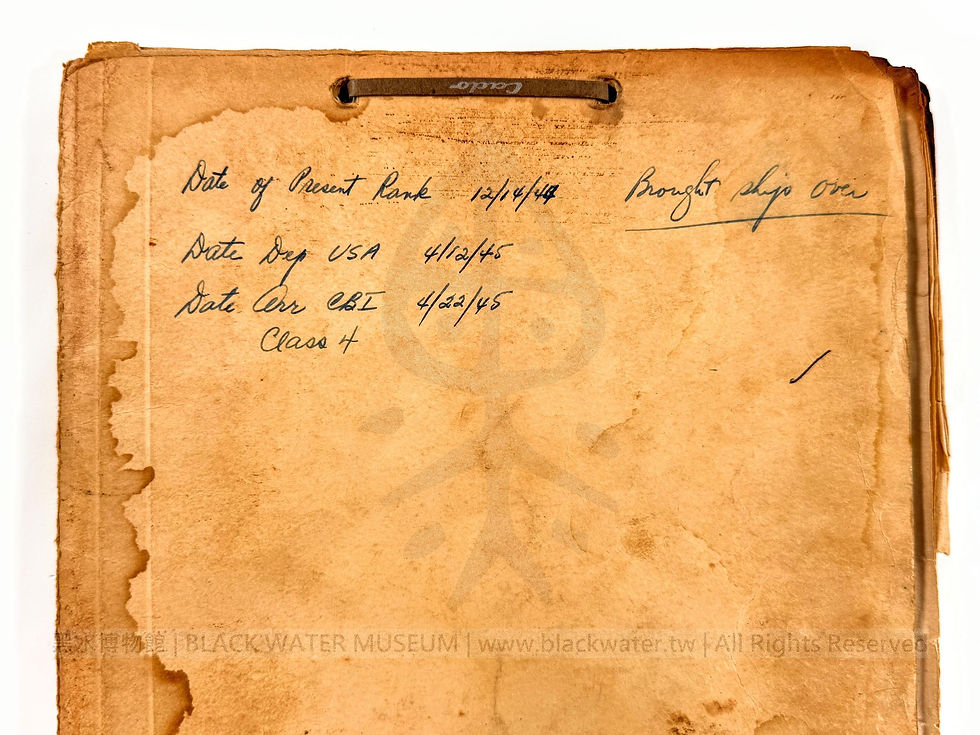 Cado
Date of Present Rank 12/14/44 Brought ships over
Date Dep USA 4/12/45
Date Arr CBI 4/22/45
Class 4
黑水博物館 | BLACK WATER MUSEUM | www.blackwater.tw | All Rights Reserved